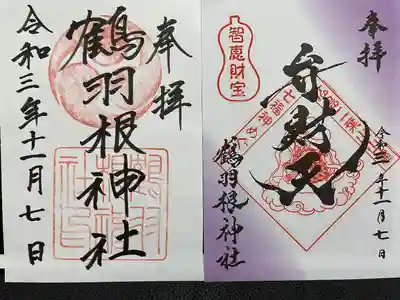 奉拝
鶴羽根神社
令和三年十一月七日
鶴羽根神社印
奉拝
令和三年十一月七日
弁財天
智恵財宝
七福神めぐり
鶴羽根神社